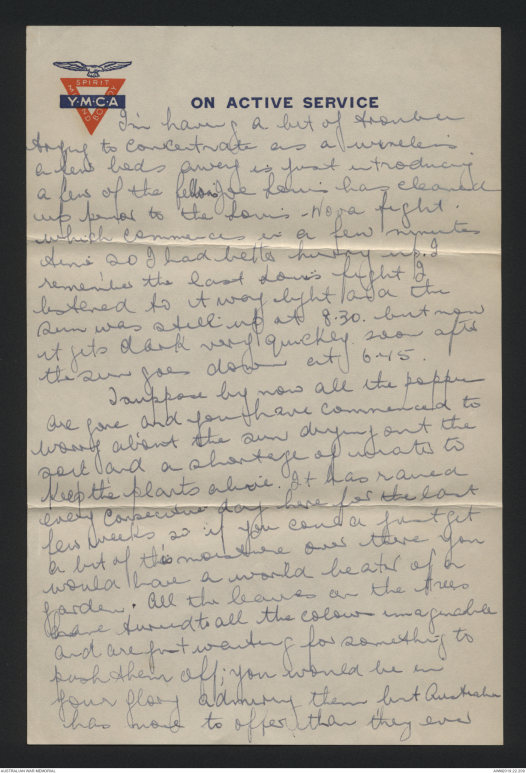 SPIRIT
MIND
BODY
Y·M·C·A
ON ACTIVE SERVICE
I'm having a bit of trouble
trying to concentrate as a wireless
a few beds away is just introducing
a few of the fellows Joe Louis has cleaned
up prior to the Louis - Nova fight.
which commences in a few minutes
time so I had better hurry up. I
remember the last Louis fight I
listened to it was light and the
sun was still up at 8.30. but now
it gets dark very quickly soon after
the sun goes down at 6.45.
I suppose by now all the poppies
are gone and you have commenced to
worry about the sun drying out the
soil and a shortage of water to
keep the plants alive. It has rained
every consecutive day here for the last
few weeks so if you could just get
a bit of this moisture over there you
would have a world beater of a
garden. All the leaves on the trees
have turned to all the colours imaginable
and are just waiting for something to
push them off; you would be in
your glory admiring them but Australia
has more to offer than they ever
AUSTRALIAN WAR MEMORIAL